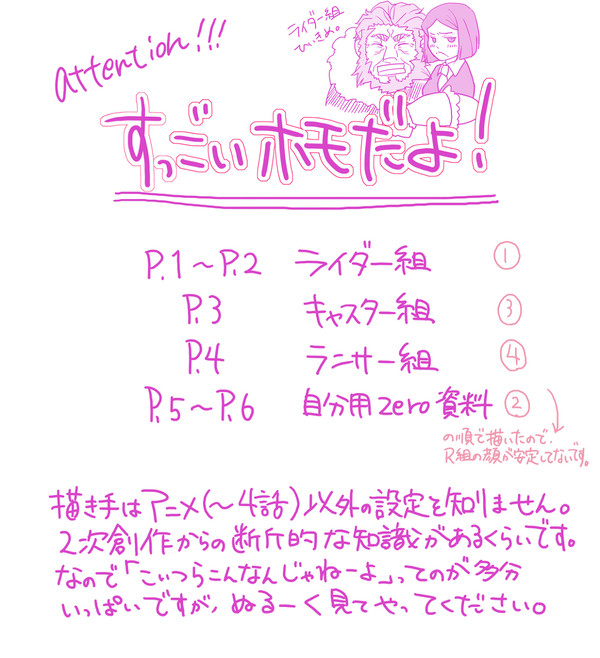 attention!!!
ライダー組
ひいきめ。
すっごいホモだよ!
P.1～P.2 ライダー組 ①
P.3 キャスター組 ③
P.4 ランサー組 ④
P.5～P.6 自分用zero資料 ②
の順で描いたので、
R組の顔が安定してないです。
描き手はアニメ(～4話)以外の設定を知りません。
2次創作からの断片的な知識があるくらいです。
なので「こいつらこんなんじゃねーよ」ってのが多分
いっぱいですが、ぬるーく見てやってください。